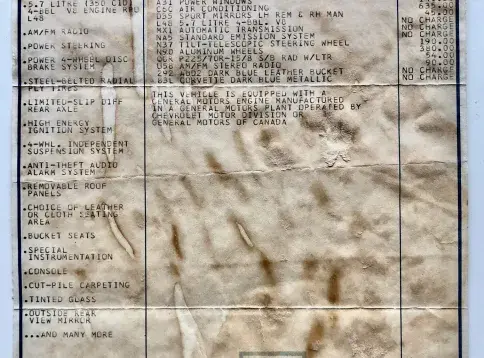 .5.7 LITRE (350 CID)
4-BBL. V8 ENGINE RPO
L48
.AM/FM RADIO
.POWER STEERING
.POWER 4-WHEEL DISC
BRAKE SYSTEM
.STEEL-BELTED RADIAL
PLY TIRES
.LIMITED-SLIP DIFF
REAR AXLE
.HIGH ENERGY
IGNITION SYSTEM
.4-WHL. INDEPENDENT
SUSPENSION SYSTEM
.ANTI-THEFT AUDIO
ALARM SYSTEM
.REMOVABLE ROOF
PANELS
.CHOICE OF LEATHER
OR CLOTH SEATING
AREA
.BUCKET SEATS
.SPECIAL
INSTRUMENTATION
.CONSOLE
.CUT-PILE CARPETING
.TINTED GLASS
.OUTSIDE REAR
VIEW MIRROR
...AND MANY MORE
A31 POWER WINDOWS
C60 AIR CONDITIONING
D35 SPORT MIRRORS LH REM & RH MAN
L48 5.7 LITRE 4-BBL. V8
MX1 AUTOMATIC TRANSMISSION
NA5 STANDARD EMISSION SYSTEM
N37 TILT-TELESCOPIC STEERING WHEEL
N90 ALUMINUM WHEELS
QGR P225/70R-15/B S/B RAD W/LTR
U58 AM/FM STEREO RADIO
292 6802 DARK BLUE LEATHER BUCKET
83L CORVETTE DARK BLUE METALLIC
THIS VEHICLE IS EQUIPPED WITH A
GENERAL MOTORS ENGINE MANUFACTURED
IN A GENERAL MOTORS PLANT OPERATED BY
CHEVROLET MOTOR DIVISION OR
GENERAL MOTORS OF CANADA
635.00
45.00
NO CHARGE
NO CHARGE
NO CHARGE
190.00
380.00
54.00
90.00
NO CHARGE
NO CHARGE